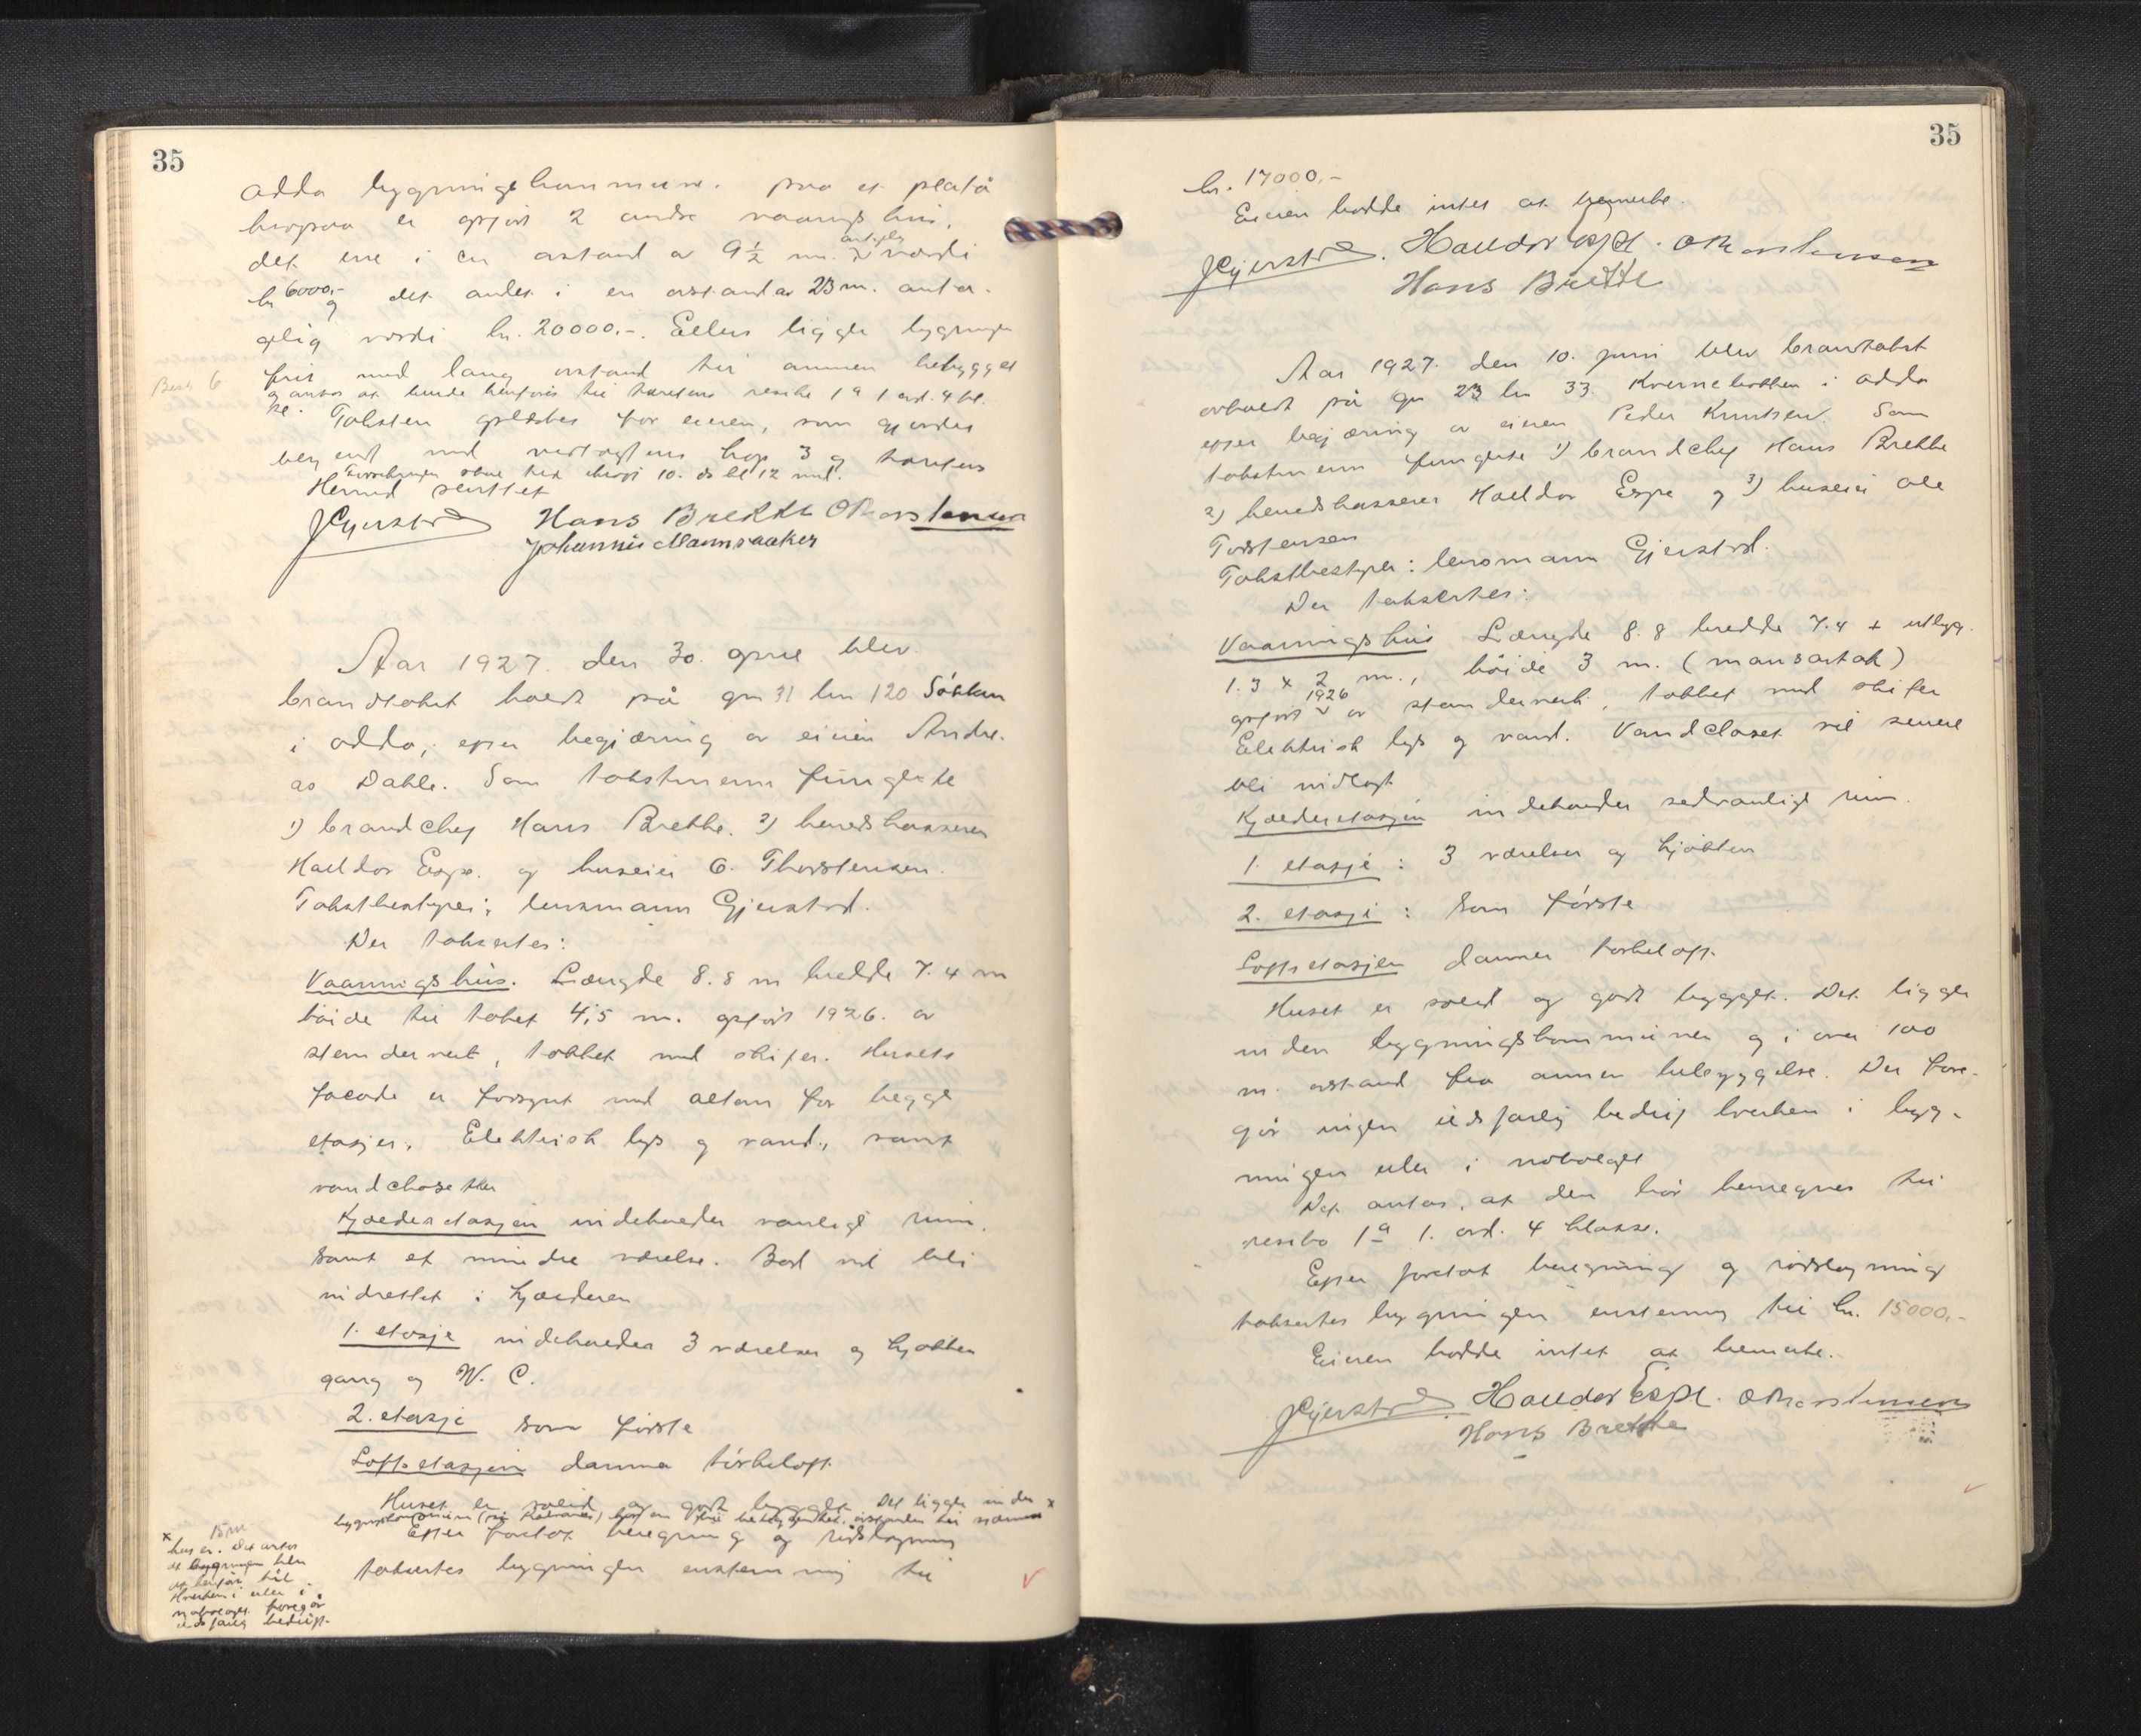 35
Odda bygningskommune. paa et platå
hvorpaa er opført 2 andre vaaningshus,
det ene i en avstand av 9 1/2 m. antagelig værdi
kr 6000,- og det andet i en avstand av 23 m. anta-
gelig værdi kr. 20000.-. Ellers ligger bygningen
frit med lang avstand til annen bebyggel
se. og antas at kunde henføres til tarifens risiko 1a 1 avd. 4 kl.
Taksten oplæstes for eieren, som gjordes
bekjendt med vedtægtens kap 3 og tarifens
10. ds kl 12 md.
Herved sluttet
JGjerstad Hans Brekke OThorstensen
Johannes Mannsaaker
Besk 6
Aar 1927. den 30. april blev
brandtakst holdt på gn 31 bn 120 Såkkan
i Odda, efter begjæring av eieren Andre-
as Dahle. Som takstmenn fungerte
1) brandchef Hans Brekke. 2) heredskasserer
Halldor Espe. og huseier O. Thorstensen.
Takstbestyrer: lensmann Gjerstad.
Der taksertes:
Vaaningshus. Længde 8.8 m bredde 7.4 m
høide til taket 4,5 m. opført 1926. av
stenderverk, takket med skifer. Husets
facade er forsynt med altan for begge
etasjer. Elektrisk lys og vand, samt
vandclosetter
Kjælderetasjen indeholder vanlige rum,
samt et mindre værelse. Bad vil bli
indrettet i kjælderen
1. etasje indeholder 3 værelser og kjøkken
gang og W. C.
2. etasje som første
Loftsetasjen danner tørkeloft.
Huset er solid og godt bygget. Det ligger inden x
Efter foretat beregning og rådslagning
taksertes bygningen enstemmig til
x 15 m
hus er. Det antas
at bygningen blir
at henføre til
Hverken i eller i
nabolaget foregår
ildsfarlig bedrift.
35
kr. 17000.-
Eieren hadde intet at bemerke.
JGjerstad. Halldor Espe. OThorstensen
Hans Brekke
Aar 1927. den 10. juni blev brandtakst
avholdt på gn 23 bn 33 Kvernebakken i Odda
efter begjæring av eieren Peder Knutsen. Som
takstmenn fungerte 1) brandchef Hans Brekke
2) heredskasserer Halldor Espe og 3) huseier Ole
Torstensen
Takstbestyrer: lensmann Gjerstad.
Der taksertes:
Vaaningshus Længde 8.8 bredde 7.4 + utbyg.
1.3 x 2 m., høide 3 m. (mansartak)
opført 1926 av stenderverk, takket med skifer
Elektrisk lys og vand. Vandcloset vil senere
bli indlagt
Kjælderetasjen indeholder sedvanlige rum.
1. etasje: 3 værelser og kjøkken
2. etasje: som første
Loftsetasjen danner tørkeloft.
Huset er solid og godt bygget. Det ligger
inden bygningskommunen og i over 100
m. avstand fra annen bebyggelse. Der fore-
går ingen ildsfarlig bedrift hverken i byg-
ningen eller i nabolaget
Det antas, at den bør henregnes til
risiko 1a 1. avd. 4 klasse.
Efter foretat beregning og rådslagning
taksertes bygningen enstemmig til kr. 15000,-
Eieren hadde intet at bemerke.
JGjerstad Halldor Espe. OThorstensen
Hans Brekke